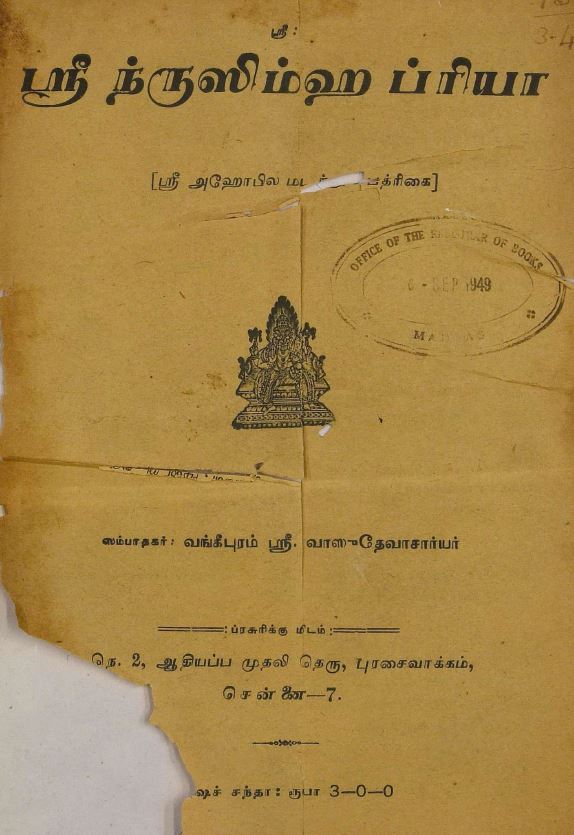 ஸ்ரீ:
ஸ்ரீ ந்ருஸிம்ஹ ப்ரியா
[ஸ்ரீ அஹோபில
OFFICE OF THE REGISTRAR OF BOOKS
SEP 1949
MADRAS
ஸம்பாதகர்: வங்கீபுரம் ஸ்ரீ. வாஸுதேவாசார்யர்
ப்ரசுரிக்கு மிடம்:
நெ. 2, ஆதியப்ப முதலி தெரு, புரசைவாக்கம்,
சென்னை—7.
சந்தா: ரூபா 3—0—0